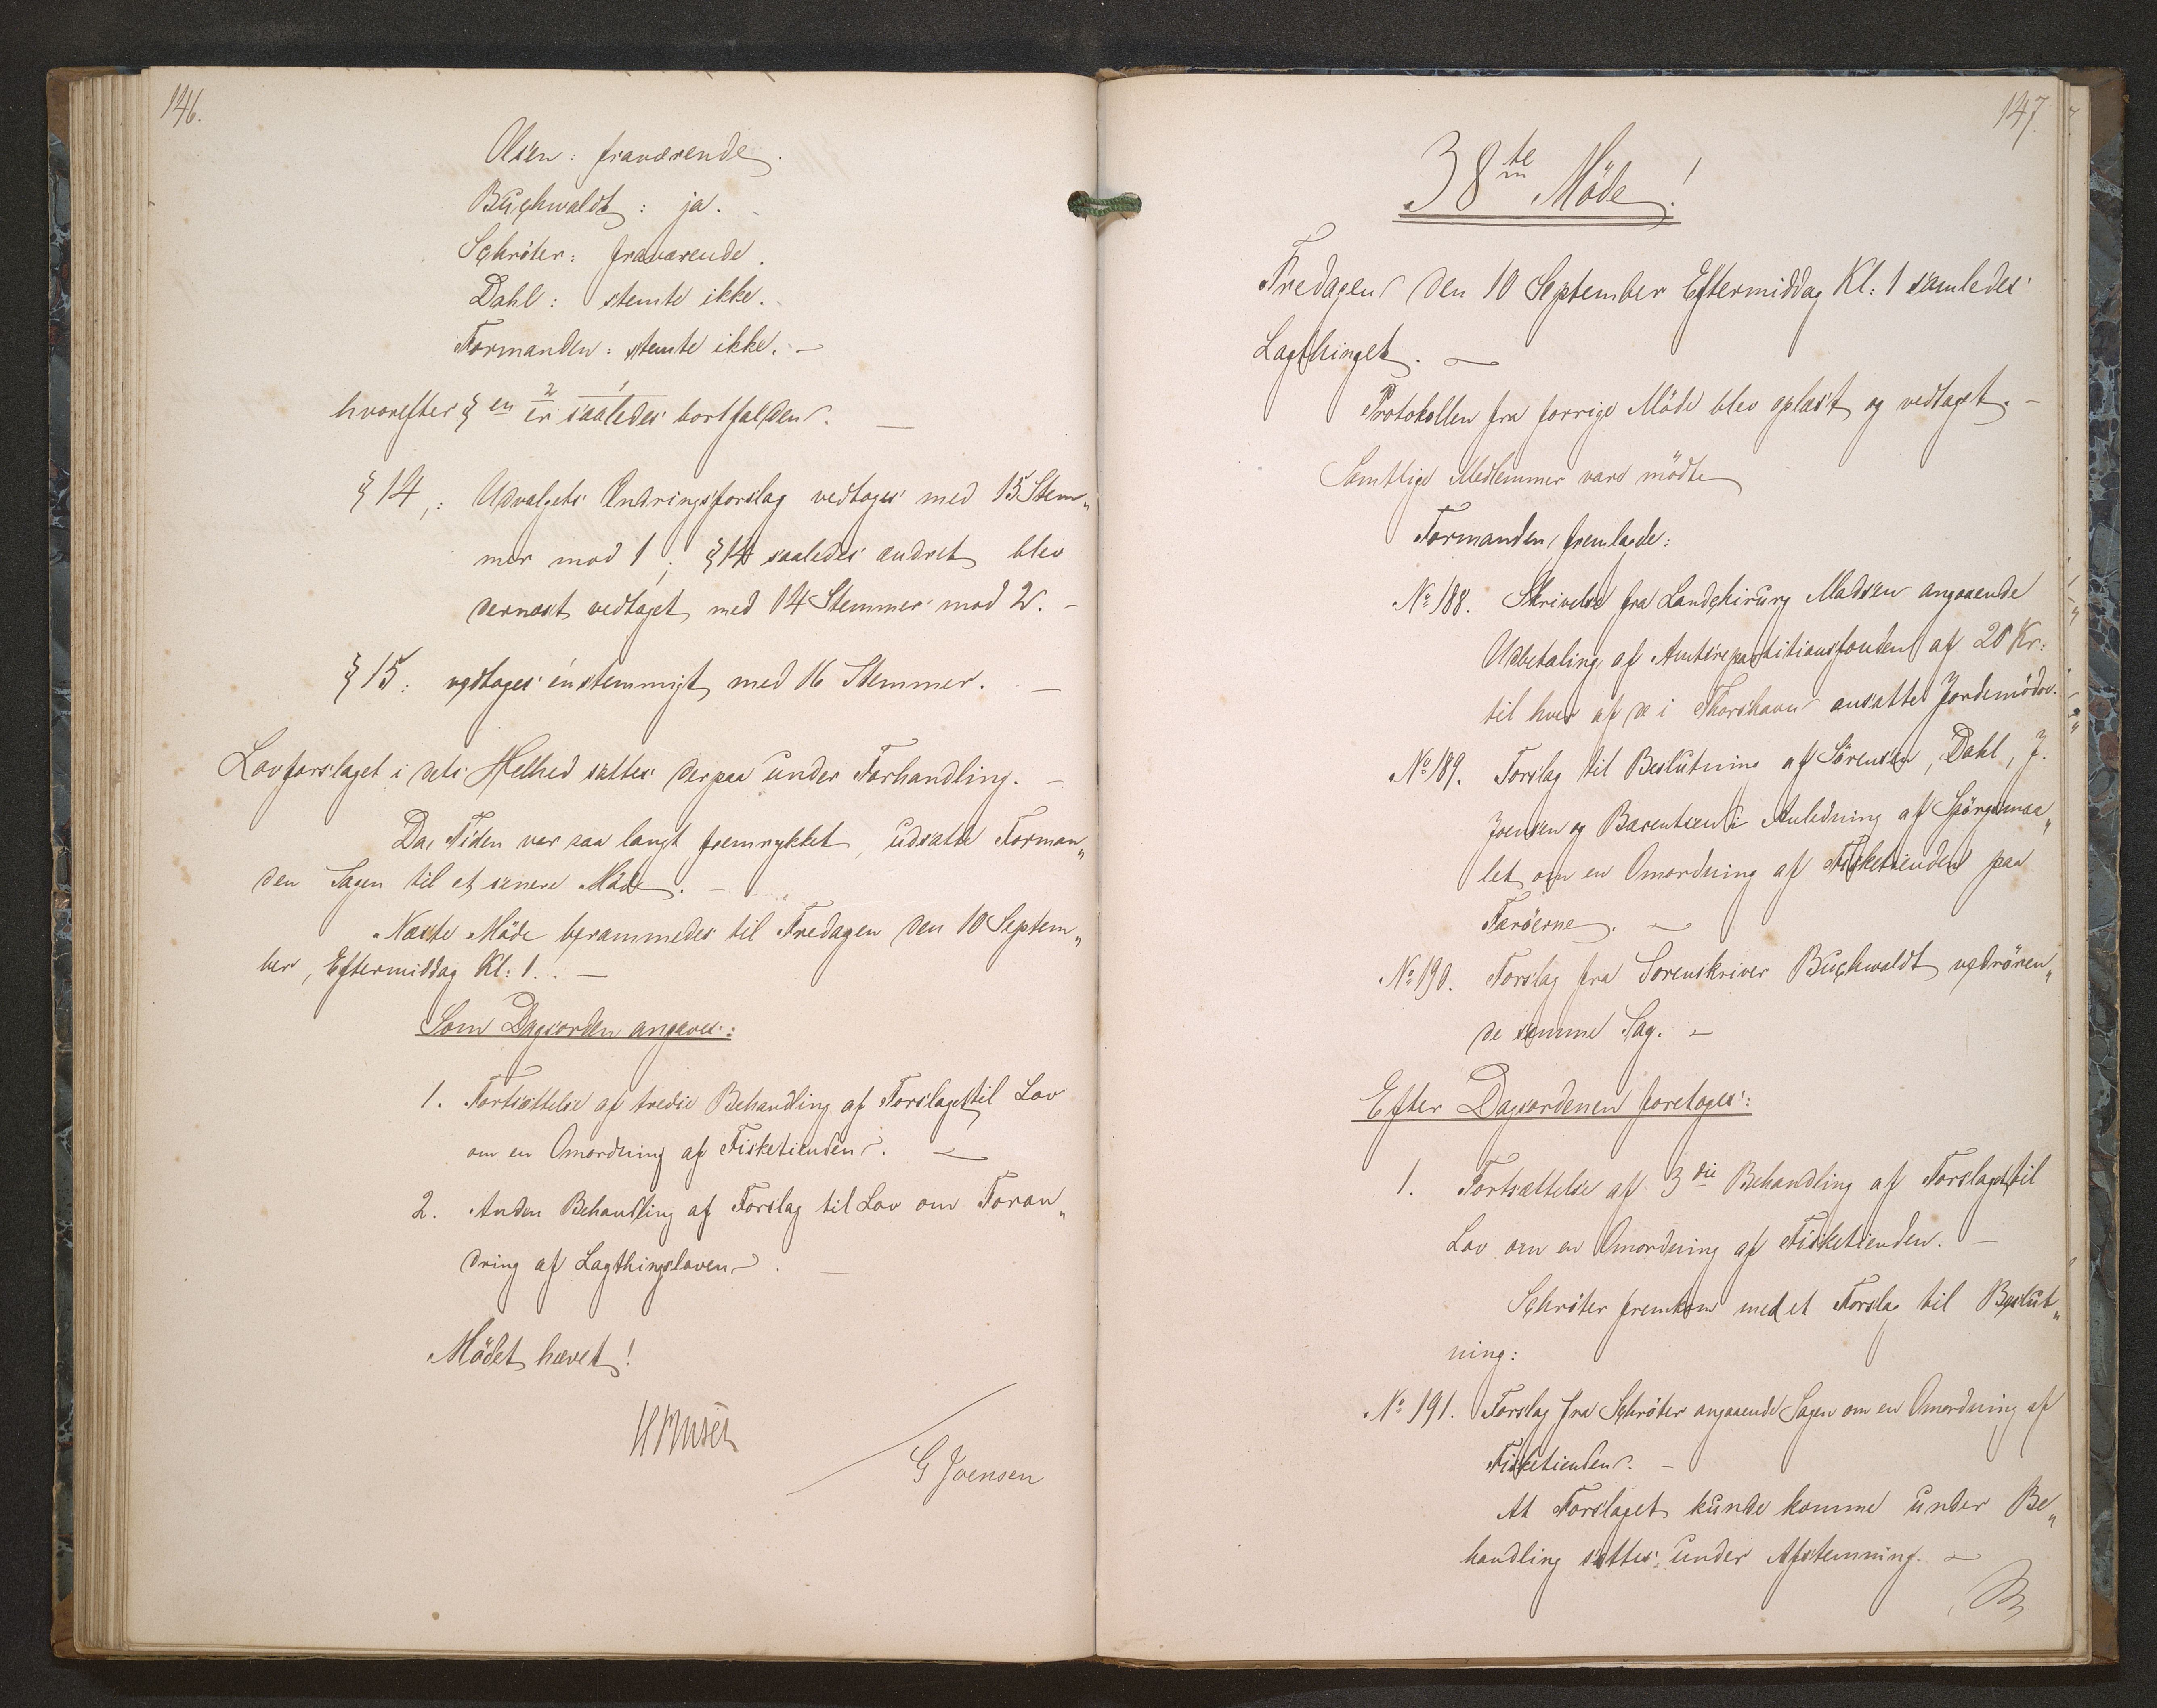 146.
Olsen: fraværende.
Buchwaldt: ja.
Schröter: fraværende.
Dahl: stemte ikke.
Formanden: stemte ikke. —
2 1
hvorefter § en er saaledes bortfalden. —
§ 14,: Udvalgets Ændringsforslag vedtoges med 15 Stem„
mer mod 1; § 14 saaledes ændret blev
dernæst vedtaget med 14 Stemmer mod 2. —
§ 15: vedtoges énstemmigt med 16 Stemmer. —
Lovforslaget i dets Helhed sattes derpaa under Forhandling. —
Da Tiden var saa langt fremrykket, udsatte Forman„
den Sagen til et senere Möde. —
Næste Möde berammedes til Fredagen den 10 Septem„
ber, Eftermiddag Kl: 1. —
Som Dagsorden angaves:
1. Fortsættelse af tredie Behandling af Forslaget til Lov
om en Omordning af Fisketienden. —
2. Anden Behandling af Forslag til Lov om Foran„
dring af Lagthingsloven. —
Mödet hævet!
G Joensen
147.
38te Möde!
Fredagen den 10 September Eftermiddag Kl: 1 samledes
Lagthinget. —
Protokollen fra forrige Möde blev oplæst og vedtaget. —
Samtlige Medlemmer vare mödte
Formanden fremlagde:
No 188. Skrivelse fra Landchirurg Madsen angaaende
Udbetaling af Amtsrepartitionsfonden af 20 Kr:
til hver af de i Thorshavn ansatte Jordemödre.
No 189. Forslag til Beslutning af Sörensen, Dahl, J.
Joensen og Barentsen i Anledning af Spörgsmaa„
let om en Omordning af Fisketienden paa
Færöerne. —
No 190. Forslag fra Sorenskriver Buchwaldt vedrören„
de samme Sag. —
Efter Dagsordenen foretoges:
1. Fortsættelse af 3die Behandling af Forslaget til
Lov om en Omordning af Fisketienden. —
Schröter fremkom med et Forslag til Beslut„
ning:
No 191. Forslag fra Schröter angaaende Sagen om en Omordning af
Fisketienden. —
At Forslaget kunde komme under Be„
handling sattes under Afstemning. —